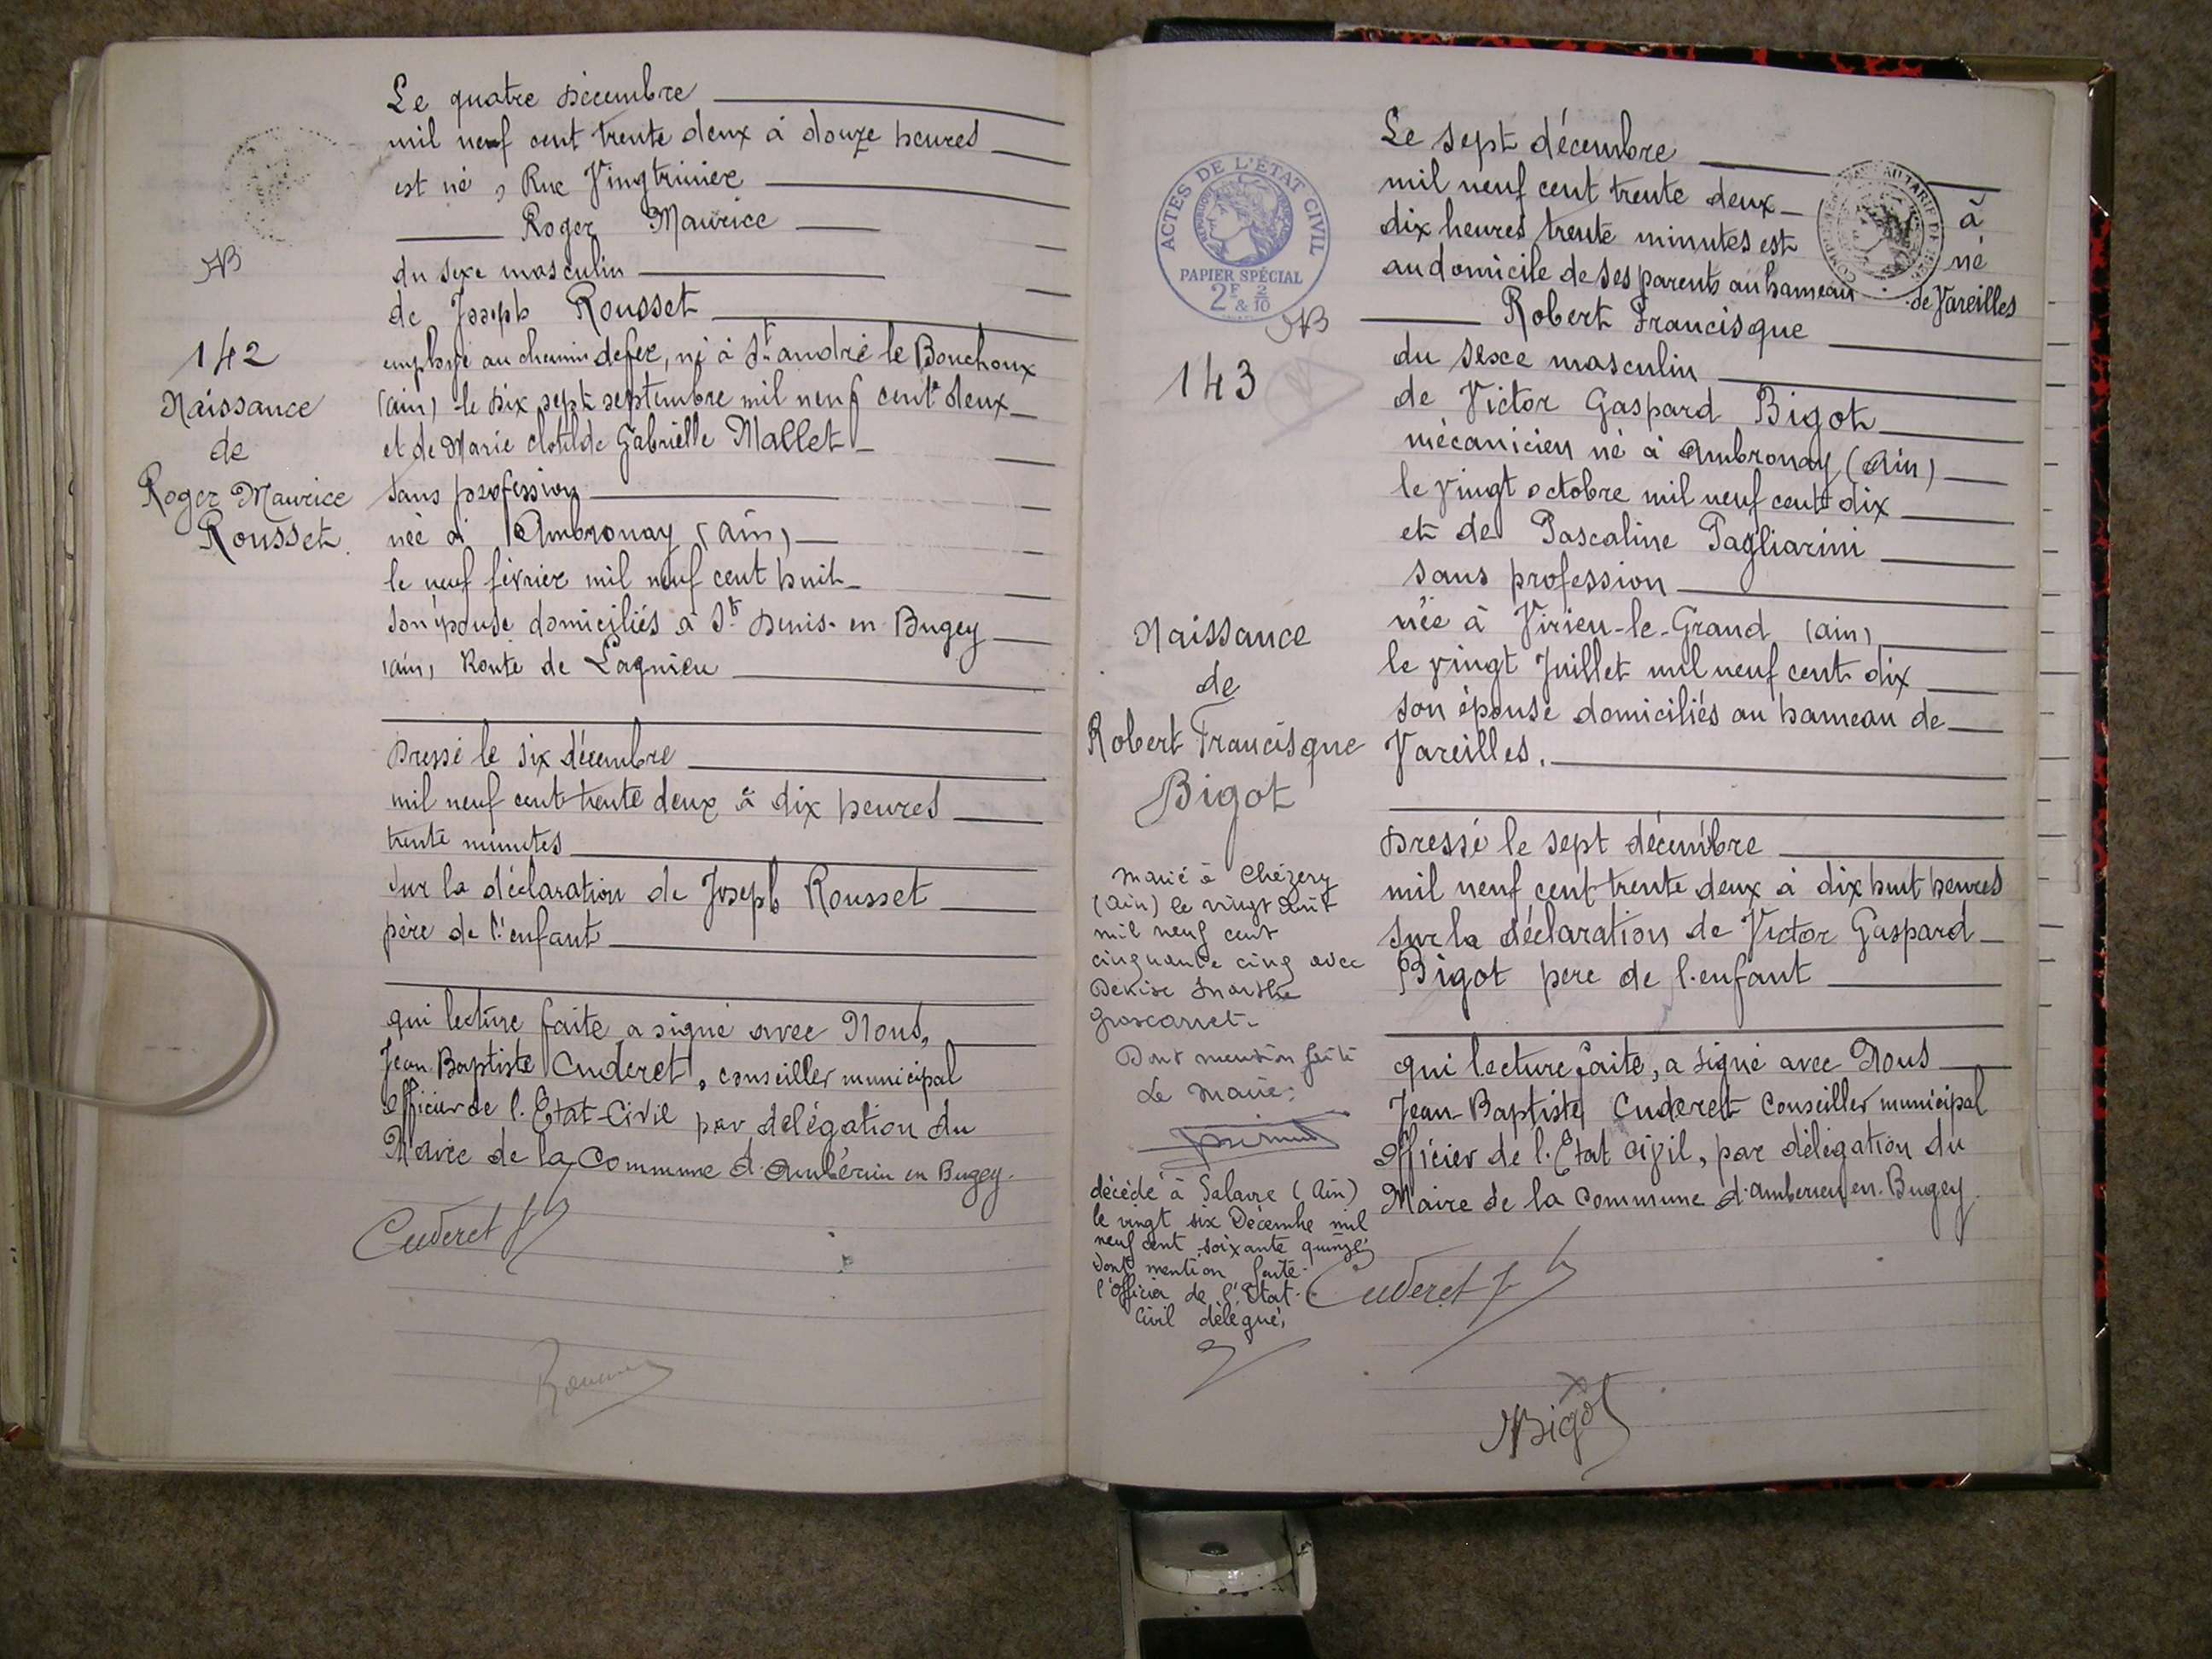 Le quatre décembre
mil neuf cent trente deux à douze heures
est né, Rue Vingtrinier
Roger Maurice
du sexe masculin
de Joseph Rousset
employé au chemin de fer, né à St andré le Bouchoux
(ain) le dix sept septembre mil neuf cent deux
et de Marie Clotilde Gabrielle Mallet
sans profession
née à Ambronay (ain)
le neuf février mil neuf cent huit
son épouse domiciliés à St Denis-en-Bugey
(ain) Route de Lagnieu
Dressé le six décembre
mil neuf cent trente deux à dix heures
trente minutes
sur la déclaration de Joseph Rousset
père de l'enfant
qui lecture faite a signé avec Nous,
Jean Baptiste Cuderet, conseiller municipal
officier de l'Etat-Civil par délégation du
Maire de la Commune d'Ambérieu en Bugey.
Cuderet J
142
Naissance
de
Roger Maurice
Rousset.
ACTES DE L'ÉTAT CIVIL
PAPIER SPÉCIAL
2F & 2/10
143
Naissance
de
Robert Francisque
Bigot
Marié à Chézery
(Ain) le vingt août
mil neuf cent
cinquante cinq avec
Denise
Groscarret.
Dont mention faite
Le Maire:
décédé à Salavre (Ain)
le vingt six Décembre mil
neuf cent soixante quinze
Dont mention faite.
l'Officier de l'Etat-
Civil délégué,
Le sept décembre
mil neuf cent trente deux à
dix heures trente minutes est né
au domicile de ses parents au hameau de Vareilles
Robert Francisque
du sexe masculin
de Victor Gaspard Bigot
mécanicien né à Ambronay (Ain)
le vingt octobre mil neuf cent dix
et de Pascaline Pagliarini
sans profession
née à Virieu-le-Grand (ain)
le vingt Juillet mil neuf cent dix
son épouse domiciliés au hameau de
Vareilles.
Dressé le sept décembre
mil neuf cent trente deux à dix huit heures
sur la déclaration de Victor Gaspard
Bigot père de l'enfant
qui lecture faite, a signé avec Nous
Jean-Baptiste Cuderet Conseiller municipal
officier de l'Etat civil, par délégation du
Maire de la Commune d'Ambérieu en Bugey.
Cuderet J
Bigot